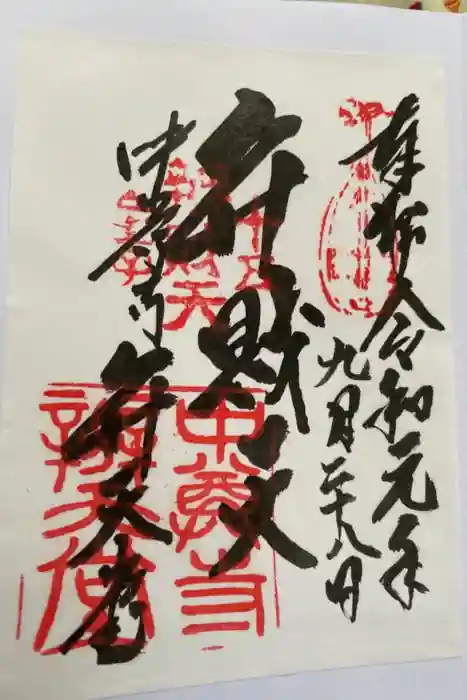 奉拝 令和元年
九月二十八日
弁財天
中尊寺 弁天堂
中尊寺